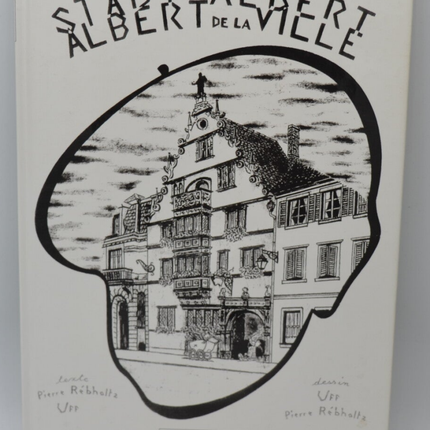 STADT ALBERT
ALBERT DE LA VILLE
texte
Pierre Rebholtz
UPP
dessin
UPP
Pierre Rebholtz